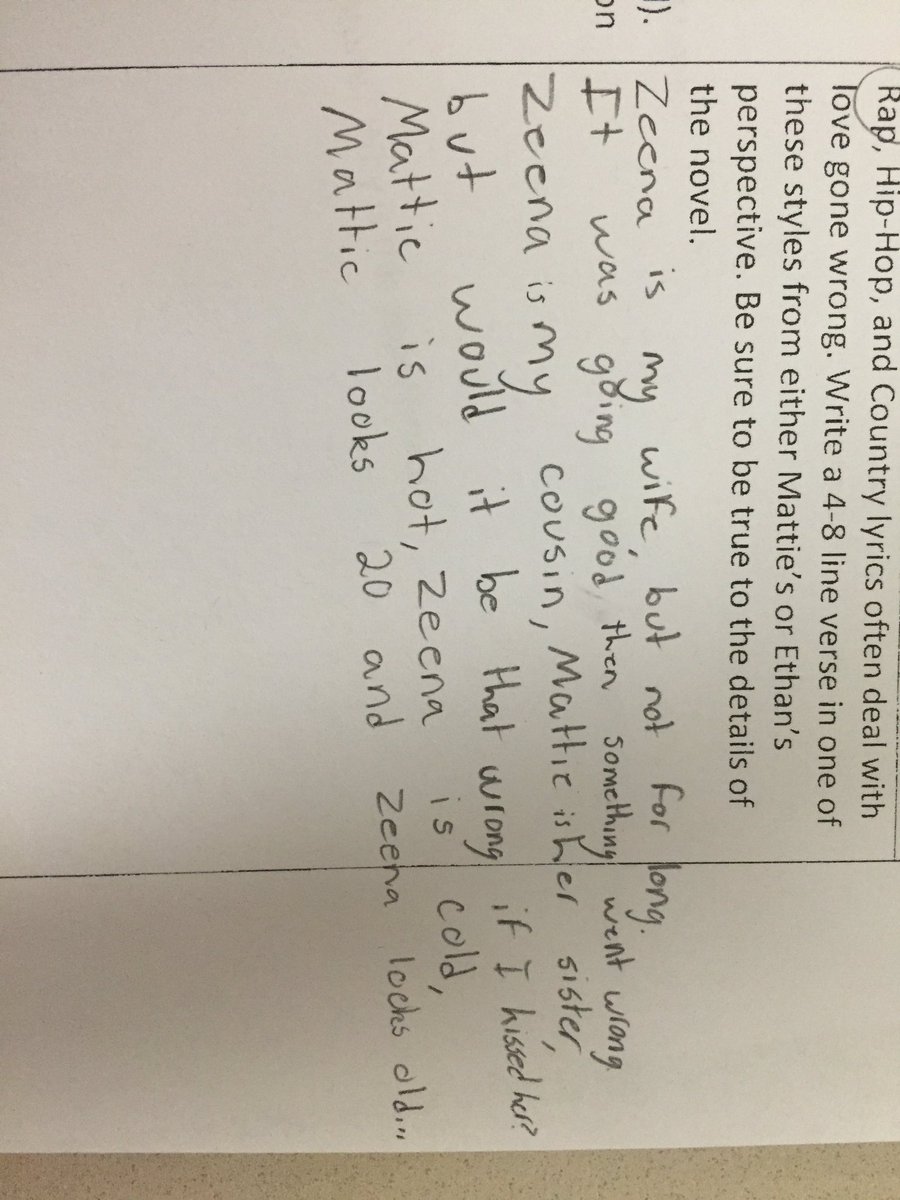 ).
on
Rap, Hip-Hop, and Country lyrics often deal with
love gone wrong. Write a 4-8 line verse in one of
these styles from either Mattie's or Ethan's
perspective. Be sure to be true to the details of
the novel.
Zeena is my wife, but not for long.
It was going good, then something went wrong.
Zeena is my cousin, Mattie is her sister,
but would it be that wrong if I kissed her?
Mattie is hot, Zeena is cold,
Mattie looks 20 and Zeena looks old...